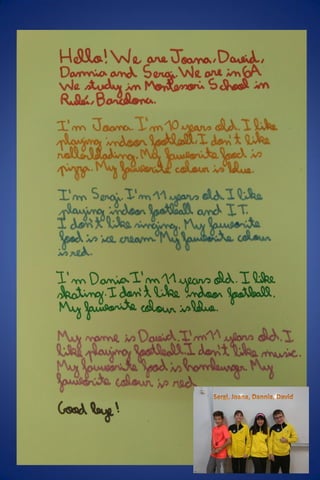 Hello! We are Joana, David,
Dannia and Sergi. We are in 6A
We study in Montessori School in
Rubí, Barcelona.
I'm Joana I'm 10 years old. I like
playing indoor football. I don't like
rollerblading. My favourite food is
pizza. My favourite colour is blue.
I'm Sergi. I'm 11 years old. I like
playing indoor football and I.T.
I don't like singing. My favourite
food is ice cream. My favourite colour
is red.
I'm Dania I'm 11 years old. I like
skating. I don't like indoor football.
My favourite colour is blue.
My name is David. I'm 11 years old. I
like playing football I don't like music.
My favourite food is hamburger My
favourite colour is red.
Good bye!
Sergi, Joana, Dannia, David